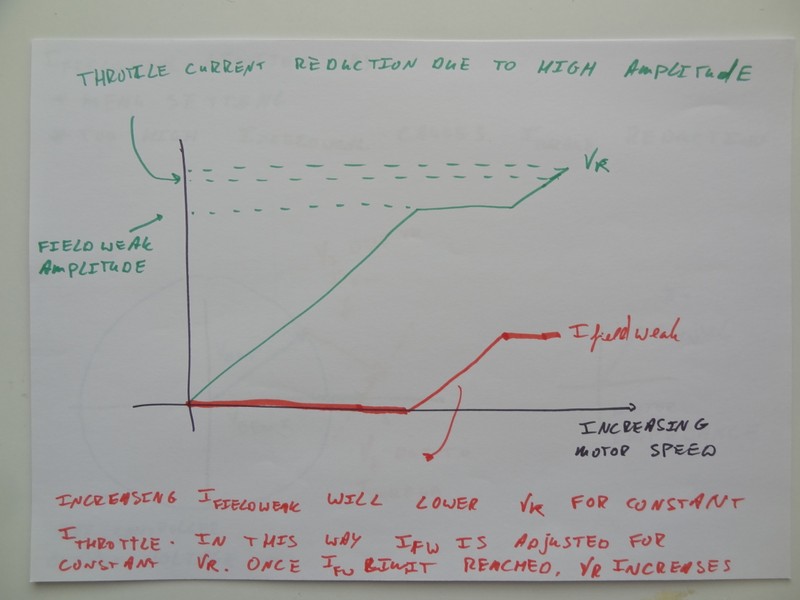 THROTTLE CURRENT REDUCTION DUE TO HIGH AMPLITUDE
VR
FIELDWEAK
AMPLITUDE
I fieldweak
INCREASING
MOTOR SPEED
INCREASING IFIELDWEAK WILL LOWER VR FOR CONSTANT
ITHROTTLE. IN THIS WAY IFW IS ADJUSTED FOR
CONSTANT VR. ONCE IFW LIMIT REACHED, VR INCREASES